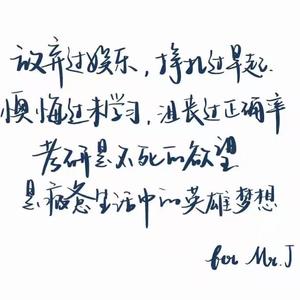 放弃过娱乐，挣扎过早起
懊悔过未学习，沮丧过正确率
考研是不死的欲望
是疲惫生活中的英雄梦想
for Mr.J